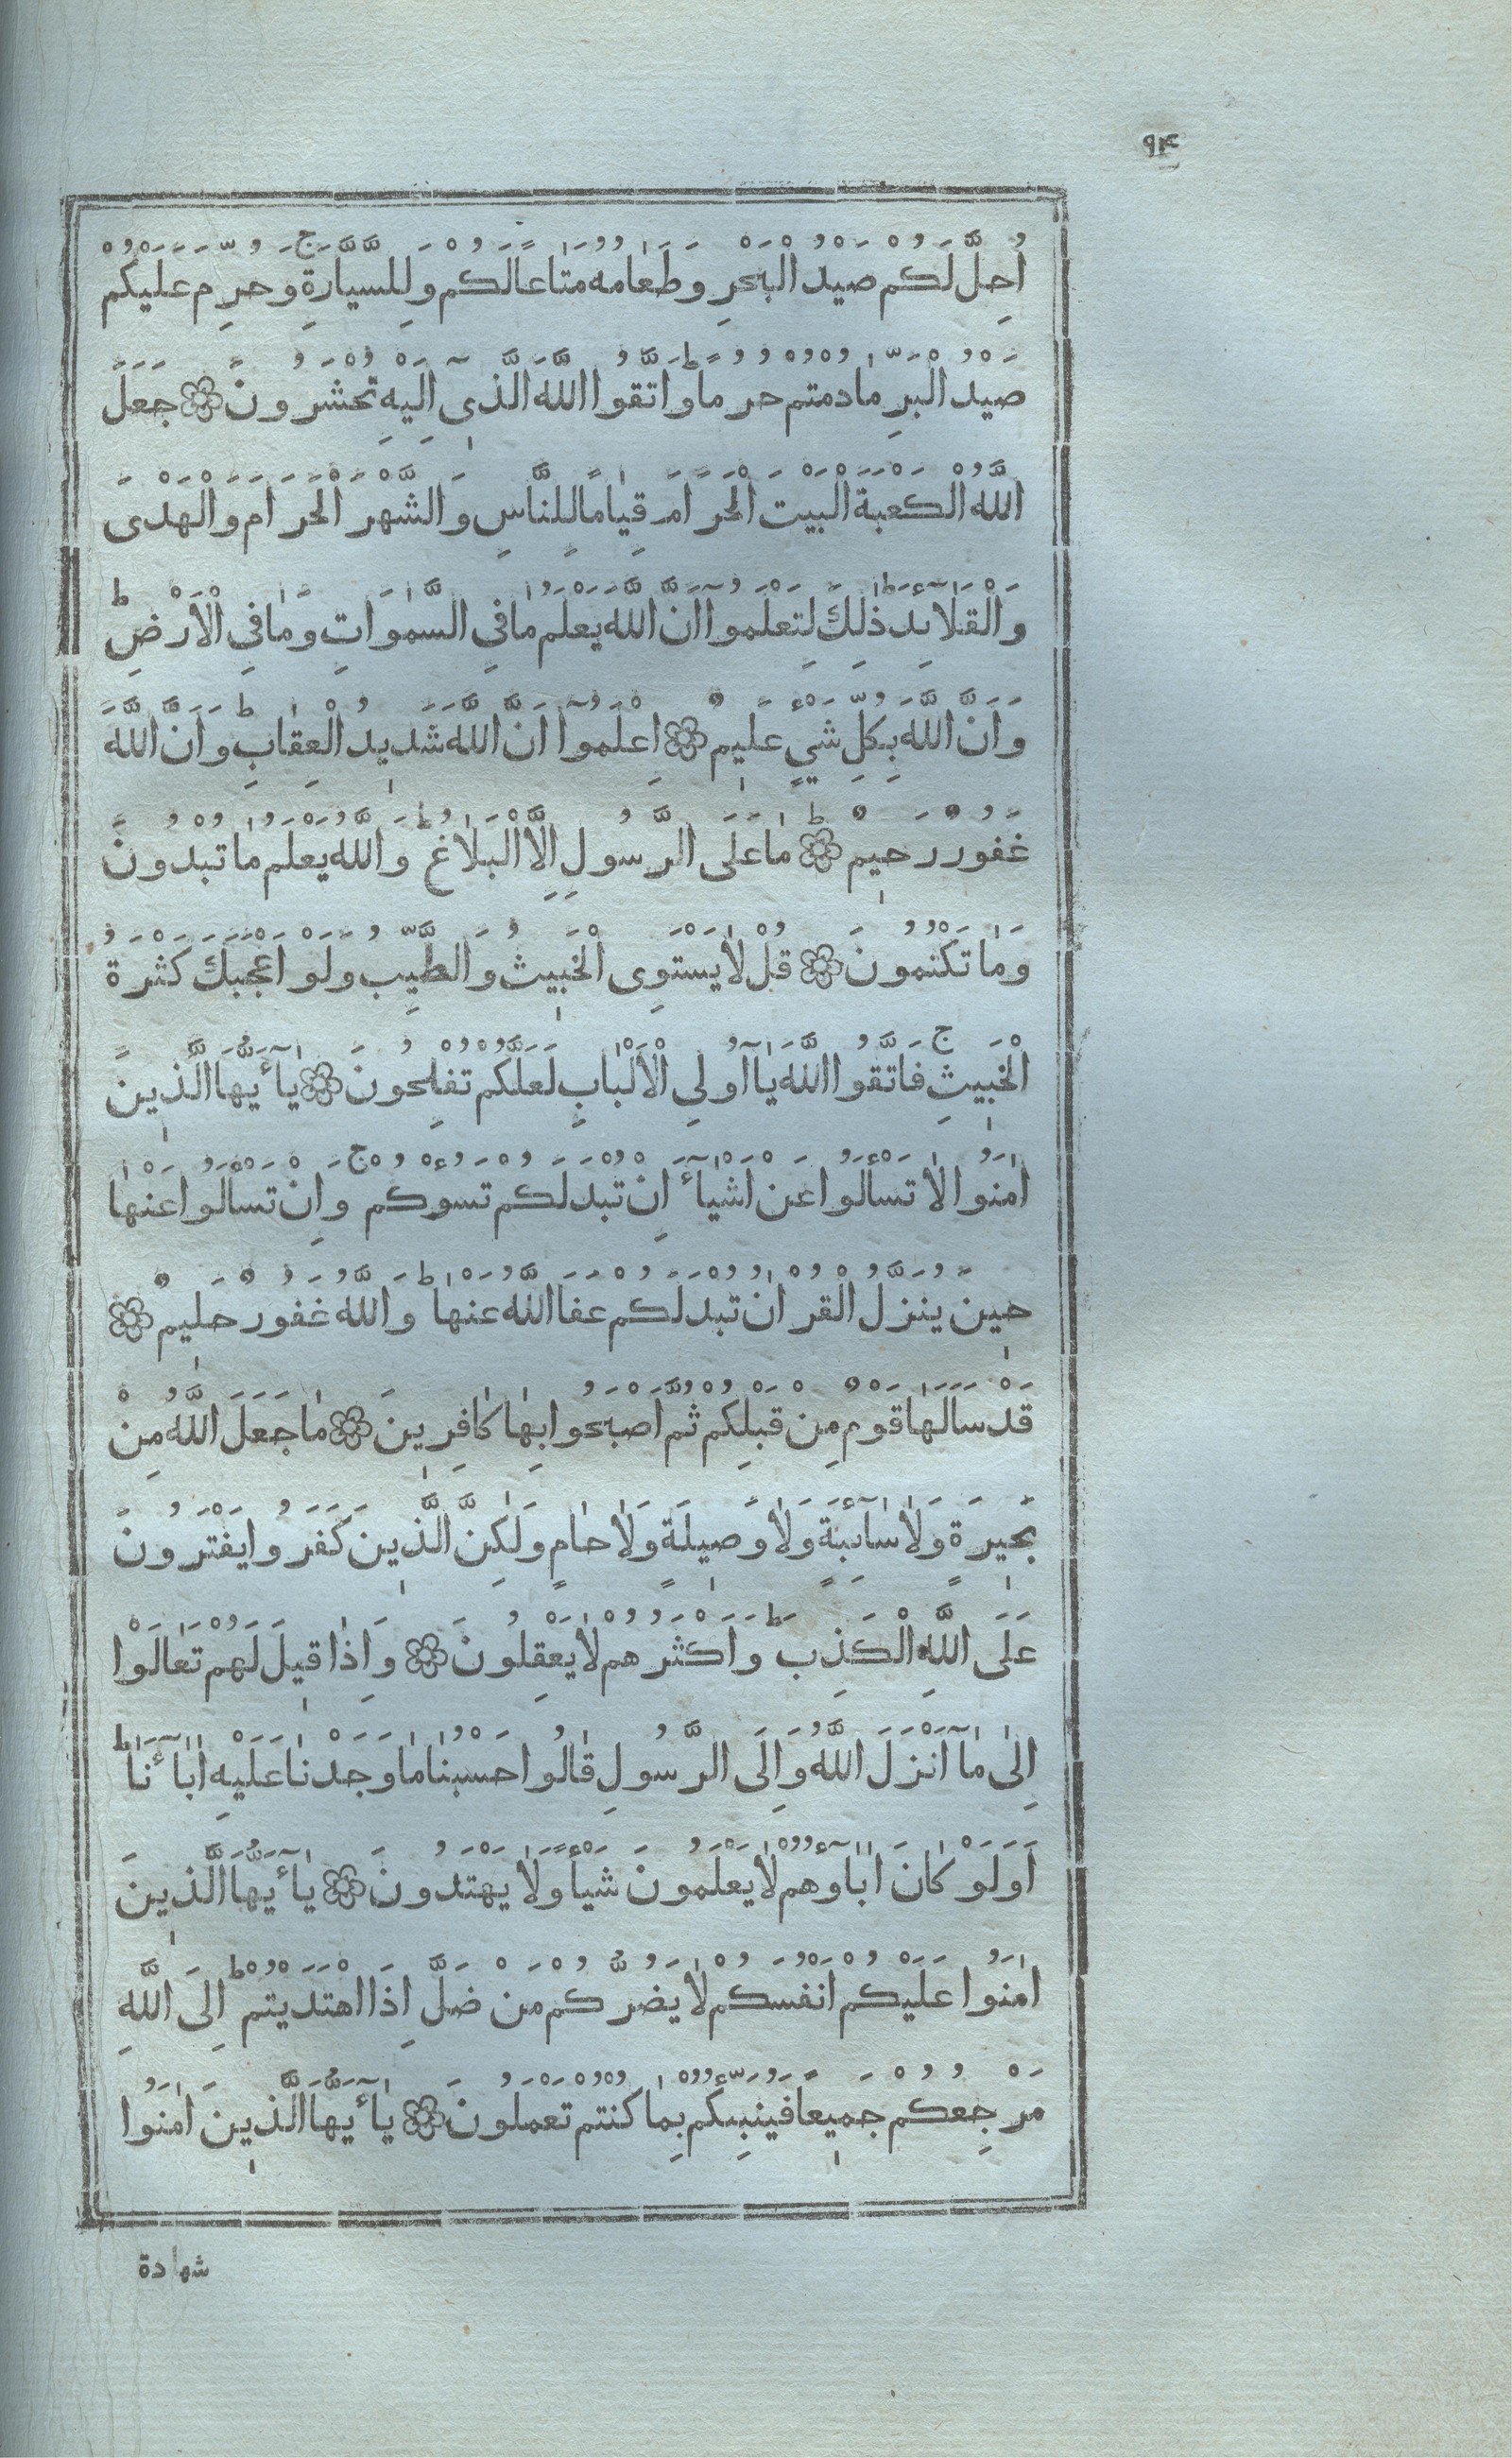 ٩٤
اُحِلَّ لَكُمْ صَيْدُ الْبَحْرِ وَطَعٰامُهُ مَتٰاعًا لَكُمْ وَلِلسَّيَّارَةِ ج وَحُرِّمَ عَلَيْكُمْ
صَيْدُ الْبَرِّ مٰا دُمْتُمْ حُرُمًا ط وَاتَّقُوا اللّٰهَ الَّذٖٓى اِلَيْهِ تُحْشَرُونَ ۞ جَعَلَ
اللّٰهُ الْكَعْبَةَ الْبَيْتَ الْحَرَامَ قِيٰامًا لِلنَّاسِ وَالشَّهْرَ الْحَرَامَ وَالْهَدْىَ
وَالْقَلٰٓائِدَ ط ذٰلِكَ لِتَعْلَمُوٓا اَنَّ اللّٰهَ يَعْلَمُ مٰا فِي السَّمٰوَاتِ وَمٰا فِي الْاَرْضِ ط
وَاَنَّ اللّٰهَ بِكُلِّ شَيْءٍ عَلٖيمٌ ۞ اِعْلَمُوٓا اَنَّ اللّٰهَ شَدٖيدُ الْعِقٰابِ ط وَاَنَّ اللّٰهَ
غَفُورٌ رَحٖيمٌ ۞ ط مٰا عَلَى الرَّسُولِ اِلَّا الْبَلٰاغُ ط وَاللّٰهُ يَعْلَمُ مٰا تُبْدُونَ
وَمٰا تَكْتُمُونَ ۞ قُلْ لٰا يَسْتَوِى الْخَبٖيثُ وَالطَّيِّبُ وَلَوْ اَعْجَبَكَ كَثْرَةُ
الْخَبٖيثِ ج فَاتَّقُوا اللّٰهَ يٰٓا اُولِى الْاَلْبٰابِ لَعَلَّكُمْ تُفْلِحُونَ ۞ يٰٓاَيُّهَا الَّذٖينَ
اٰمَنُوا لٰا تَسْأَلُوا عَنْ اَشْيٰٓاءَ اِنْ تُبْدَ لَكُمْ تَسُؤْكُمْ ج وَاِنْ تَسْأَلُوا عَنْهٰا
حٖينَ يُنَزَّلُ الْقُرْاٰنُ تُبْدَ لَكُمْ عَفَا اللّٰهُ عَنْهٰا ط وَاللّٰهُ غَفُورٌ حَلٖيمٌ ۞
قَدْ سَاَلَهٰا قَوْمٌ مِنْ قَبْلِكُمْ ثُمَّ اَصْبَحُوا بِهٰا كٰافِرٖينَ ۞ مٰا جَعَلَ اللّٰهُ مِنْ
بَحٖيرَةٍ وَلٰا سٰٓائِبَةٍ وَلٰا وَصٖيلَةٍ وَلٰا حٰامٍ وَلٰكِنَّ الَّذٖينَ كَفَرُوا يَفْتَرُونَ
عَلَى اللّٰهِ الْكَذِبَ ط وَاَكْثَرُهُمْ لٰا يَعْقِلُونَ ۞ وَاِذٰا قٖيلَ لَهُمْ تَعٰالَوْا
اِلٰى مٰٓا اَنْزَلَ اللّٰهُ وَاِلَى الرَّسُولِ قٰالُوا حَسْبُنٰا مٰا وَجَدْنٰا عَلَيْهِ اٰبٰٓاءَنٰا ط
اَوَلَوْ كٰانَ اٰبٰٓاؤُهُمْ لٰا يَعْلَمُونَ شَيْأً وَلٰا يَهْتَدُونَ ۞ يٰٓاَيُّهَا الَّذٖينَ
اٰمَنُوا عَلَيْكُمْ اَنْفُسَكُمْ لٰا يَضُرُّكُمْ مَنْ ضَلَّ اِذَا اهْتَدَيْتُمْ ط اِلَى اللّٰهِ
مَرْجِعُكُمْ جَمٖيعًا فَيُنَبِّئُكُمْ بِمٰا كُنْتُمْ تَعْمَلُونَ ۞ يٰٓاَيُّهَا الَّذٖينَ اٰمَنُوا
شهادة